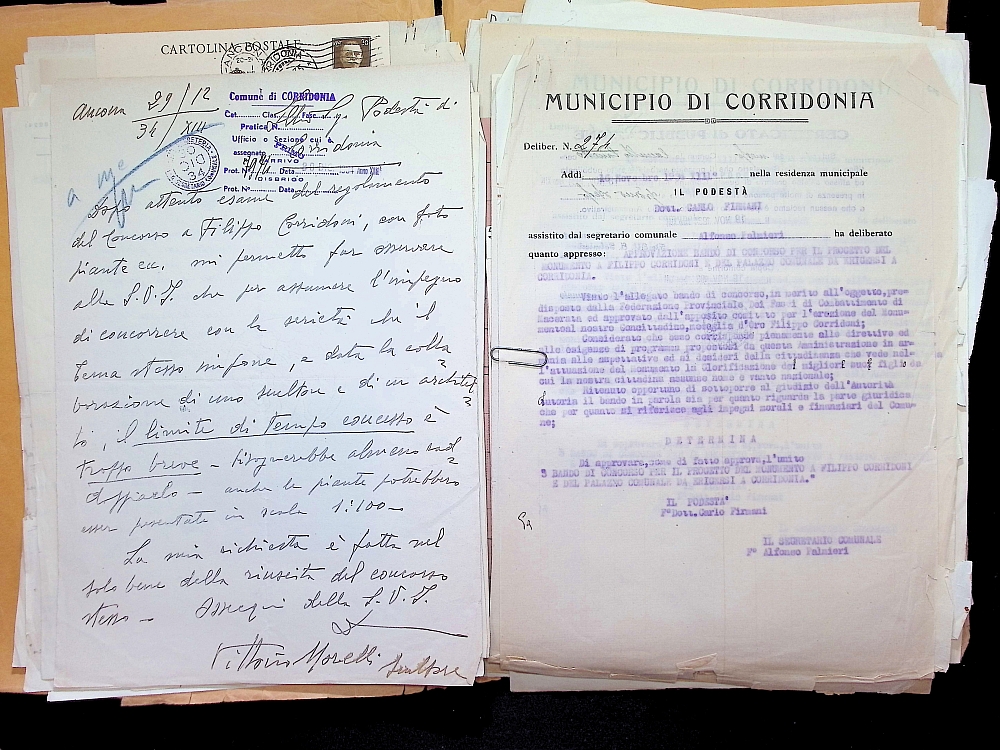 CARTOLINA POSTALE
Ancona 29/12
34 XIII
Comune di CORRIDONIA
Cat. Clas. Fasc.
Pratica N.
Ufficio o Sezione cui è
assegnato
ARRIVO
Prot. N. Data Anno XIII
DISBRIGO
Prot. N. Data
Podestà di
Corridonia
a me
Dopo attento esame del regolamento
del Concorso a Filippo Corridoni, con foto
piante ecc. mi permetto far osservare
alla S.V.I. che per assumere l'impegno
di concorrere con la serietà che il
tema stesso impone e data la colla
borazione di uno scultore e di un architet
to, il limite di tempo concesso è
troppo breve – bisognerebbe almeno rad
doppiarlo – anche le piante potrebbero
esser presentate in scala 1:100–
La mia richiesta è fatta nel
solo bene della riuscita del concorso
stesso – Ossequi della S.V.I.
Vittorio Morelli scultore
MUNICIPIO DI CORRIDONIA
Deliber. N. 274
Addì nella residenza municipale
IL PODESTÀ
Dott. CARLO FIRMANI
assistito dal segretario comunale Alfonso Palmieri ha deliberato
quanto appresso: APPROVAZIONE BANDO DI CONCORSO PER IL PROGETTO DEL
MONUMENTO A FILIPPO CORRIDONI E DEL PALAZZO COMUNALE DA ERIGERSI A
CORRIDONIA.
Visto l'allegato bando di concorso, in merito all'oggetto, pre-
disposto dalla Federazione Provinciale Dei Fasci di Combattimento di
Macerata ed approvato dall'apposito comitato per l'erezione del Monu-
mento al nostro Concittadino, medaglia d'Oro Filippo Corridoni;
Considerato che esso corrisponde pienamente alle direttive ed
alle esigenze di programma prospettati da questa Amministrazione in ar-
monia alle aspettative ed ai desideri della cittadinanza che vede nel-
l'attuazione del Monumento la Glorificazione del migliore suoi figlio da
cui la nostra cittadina assunse nome e vanto nazionale;
Ritenuto opportuno di sottoporre al giudizio dell'Autorità
tutoria il bando in parola sia per quanto riguarda la parte giuridica,
che per quanto si riferisce agli impegni morali e finanziari del Comu-
ne;
DETERMINA
Di approvare, come di fatto approva, l'unito
" BANDO DI CONCORSO PER IL PROGETTO DEL MONUMENTO A FILIPPO CORRIDONI
E DEL PALAZZO COMUNALE DA ERIGERSI A CORRIDONIA."
IL PODESTA'
F° Dott. Carlo Firmani
IL SEGRETARIO COMUNALE
F° Alfonso Palmieri